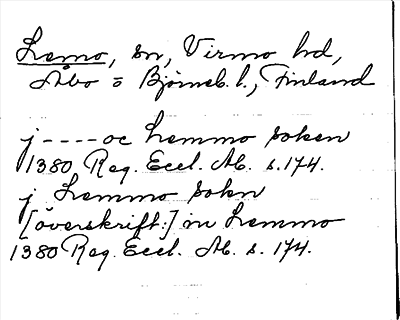 Lemo, sn, Virmo hd,
Åbo o Björneb. l., Finland
j ---- oc Lemmo soken
1380 Reg. Eccl. Ab. s. 174.
j Lemmo sokn
[överskrift:] in Lemmo
1380 Reg. Eccl. Ab. s. 174.